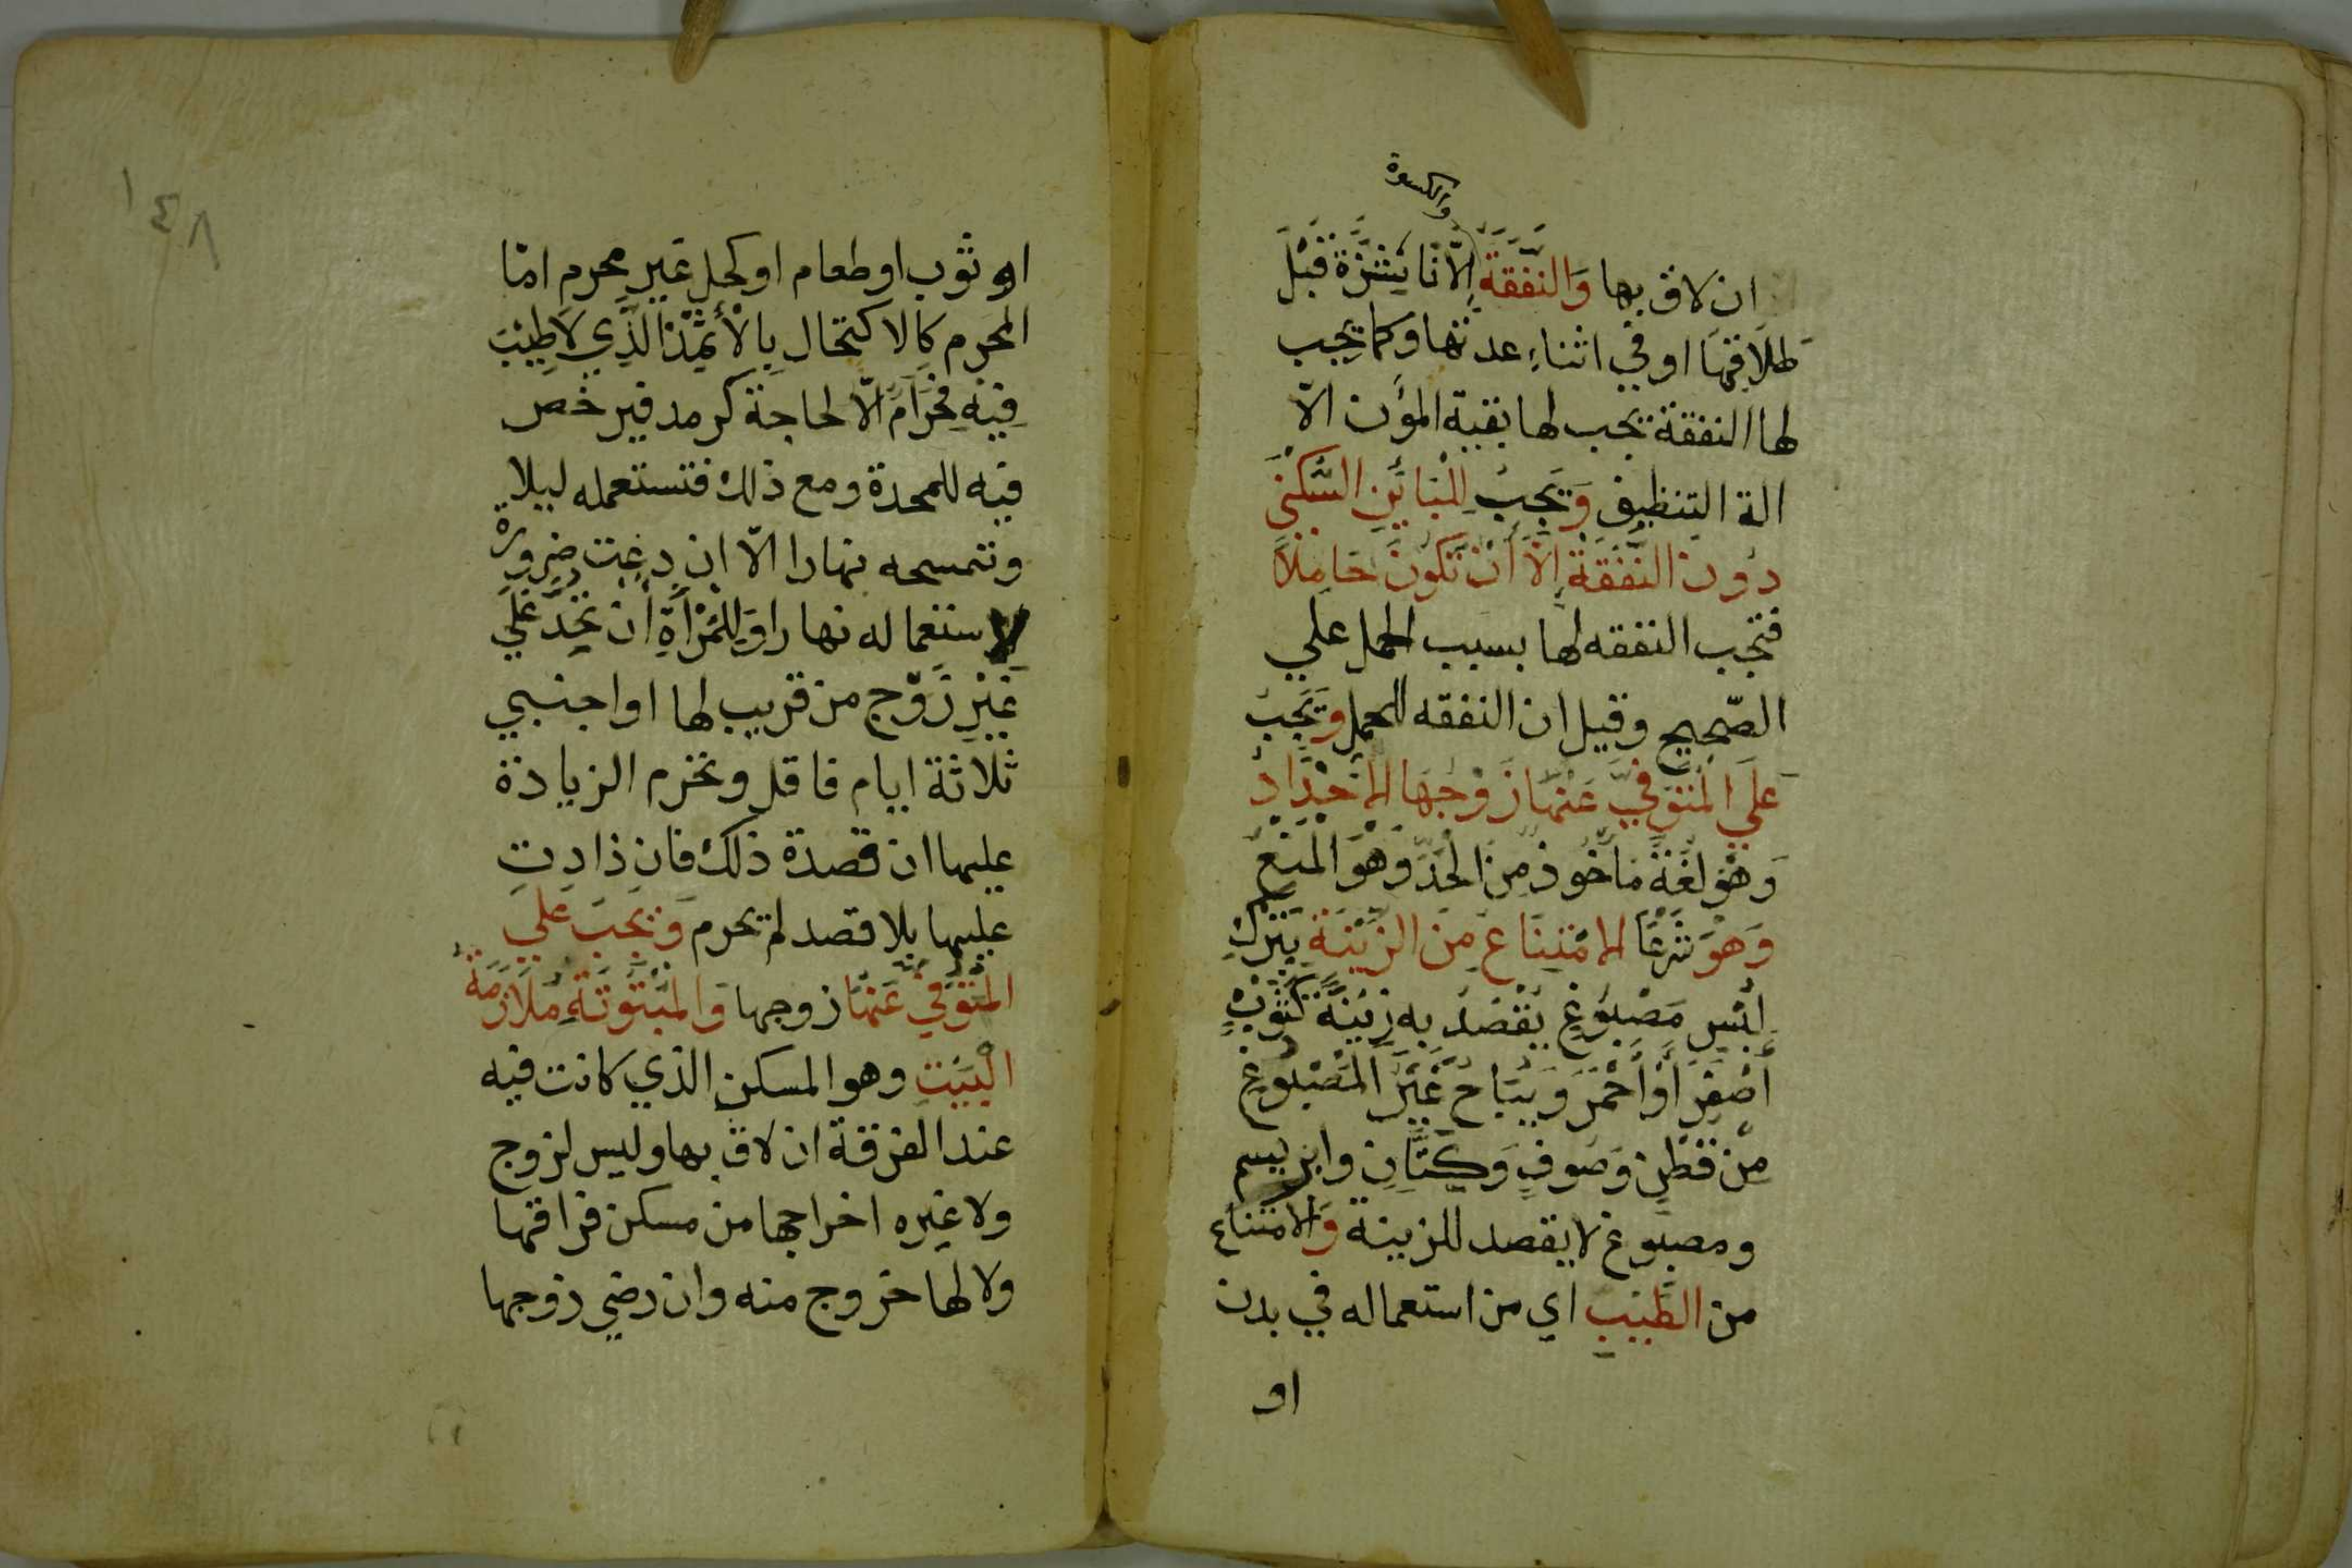 والكسوة
ان لاق بها وَالنَّفَقَةُ إِلّا نَاشِزَةً قَبْلَ
طلَاقِهَا او في اثناءِ عدتها وكما يجب
لها النفقة تجب لها بقية المؤن الّا
الة التنظيف وَيَجِبُ لِلْبَائِنِ السُّكْنَي
دُونَ النَّفَقَةِ إِلَّا أَنْ تَكُونَ حَامِلًا
فتجب النفقه لها بسبب الحمل علي
الصّحيح وقيل ان النفقه للحمل وَيَجِبُ
عَلَي الْمُتَوَفَّي عَنْهَا زَوْجُهَا الاحْدَادُ
وَهُوَ لُغَةً مَأخُوذ مِنَ الحَدِّ وَهُوَ الْمَنْعُ
وَهُوَ شَرْعًا الامْتِنَاعُ مِنَ الزِّيْنَةِ بِتَرْكِ
لُبْسِ مَصْبُوْغٍ يُقْصَدُ بِهِ زِيْنَةً كَثَوْبٍ
أَصْفَرَ أَوْ أَحْمَرَ وَيُبَاحُ غَيْرُ الْمَصْبُوْغِ
مِنْ قُطْنٍ وَصُوفٍ وَكَتَّانٍ وابريسم
ومصبوغ لا يقصد للزينة وَالامتناع
من الطِّيْبِ اي من استعماله في بدن
او
١٤٨
او ثوب اوطعام او كحل غير محرم امّا
المحرم كالاكتحال بِالْأَثْمِذ الَّذِي لَا طِيْبَ
فِيْهِ فَحَرَامٌ الّا لحاجة كرمد فيرخص
فيه للمحدة ومع ذلك فتستعمله ليلا
وتمسحه نهارا الّا ان دعت ضرورة
لاستعماله نهارا وَلِلْمَرْأَةِ أَنْ تَحِدَّ عَلَي
غَيْرِ زَوْجٍ من قريب لها او اجنبي
ثلاثة ايام فاقل وتحرم الزيادة
عليها ان قصدة ذلك فان زادت
عليها بلا قصد لم يحرم وَيَجِبُ عَلَي
الْمُتَوَفَّي عَنْهَا زوجها وَالْمَبْتُوتَةِ مُلَازَمَةُ
الْبَيْتِ وهو المسكن الذي كانت فيه
عند الفرقة ان لاق بها وليس لزوج
ولا غيره اخراجها من مسكن فراقها
ولا لها خروج منه وان رضي زوجها